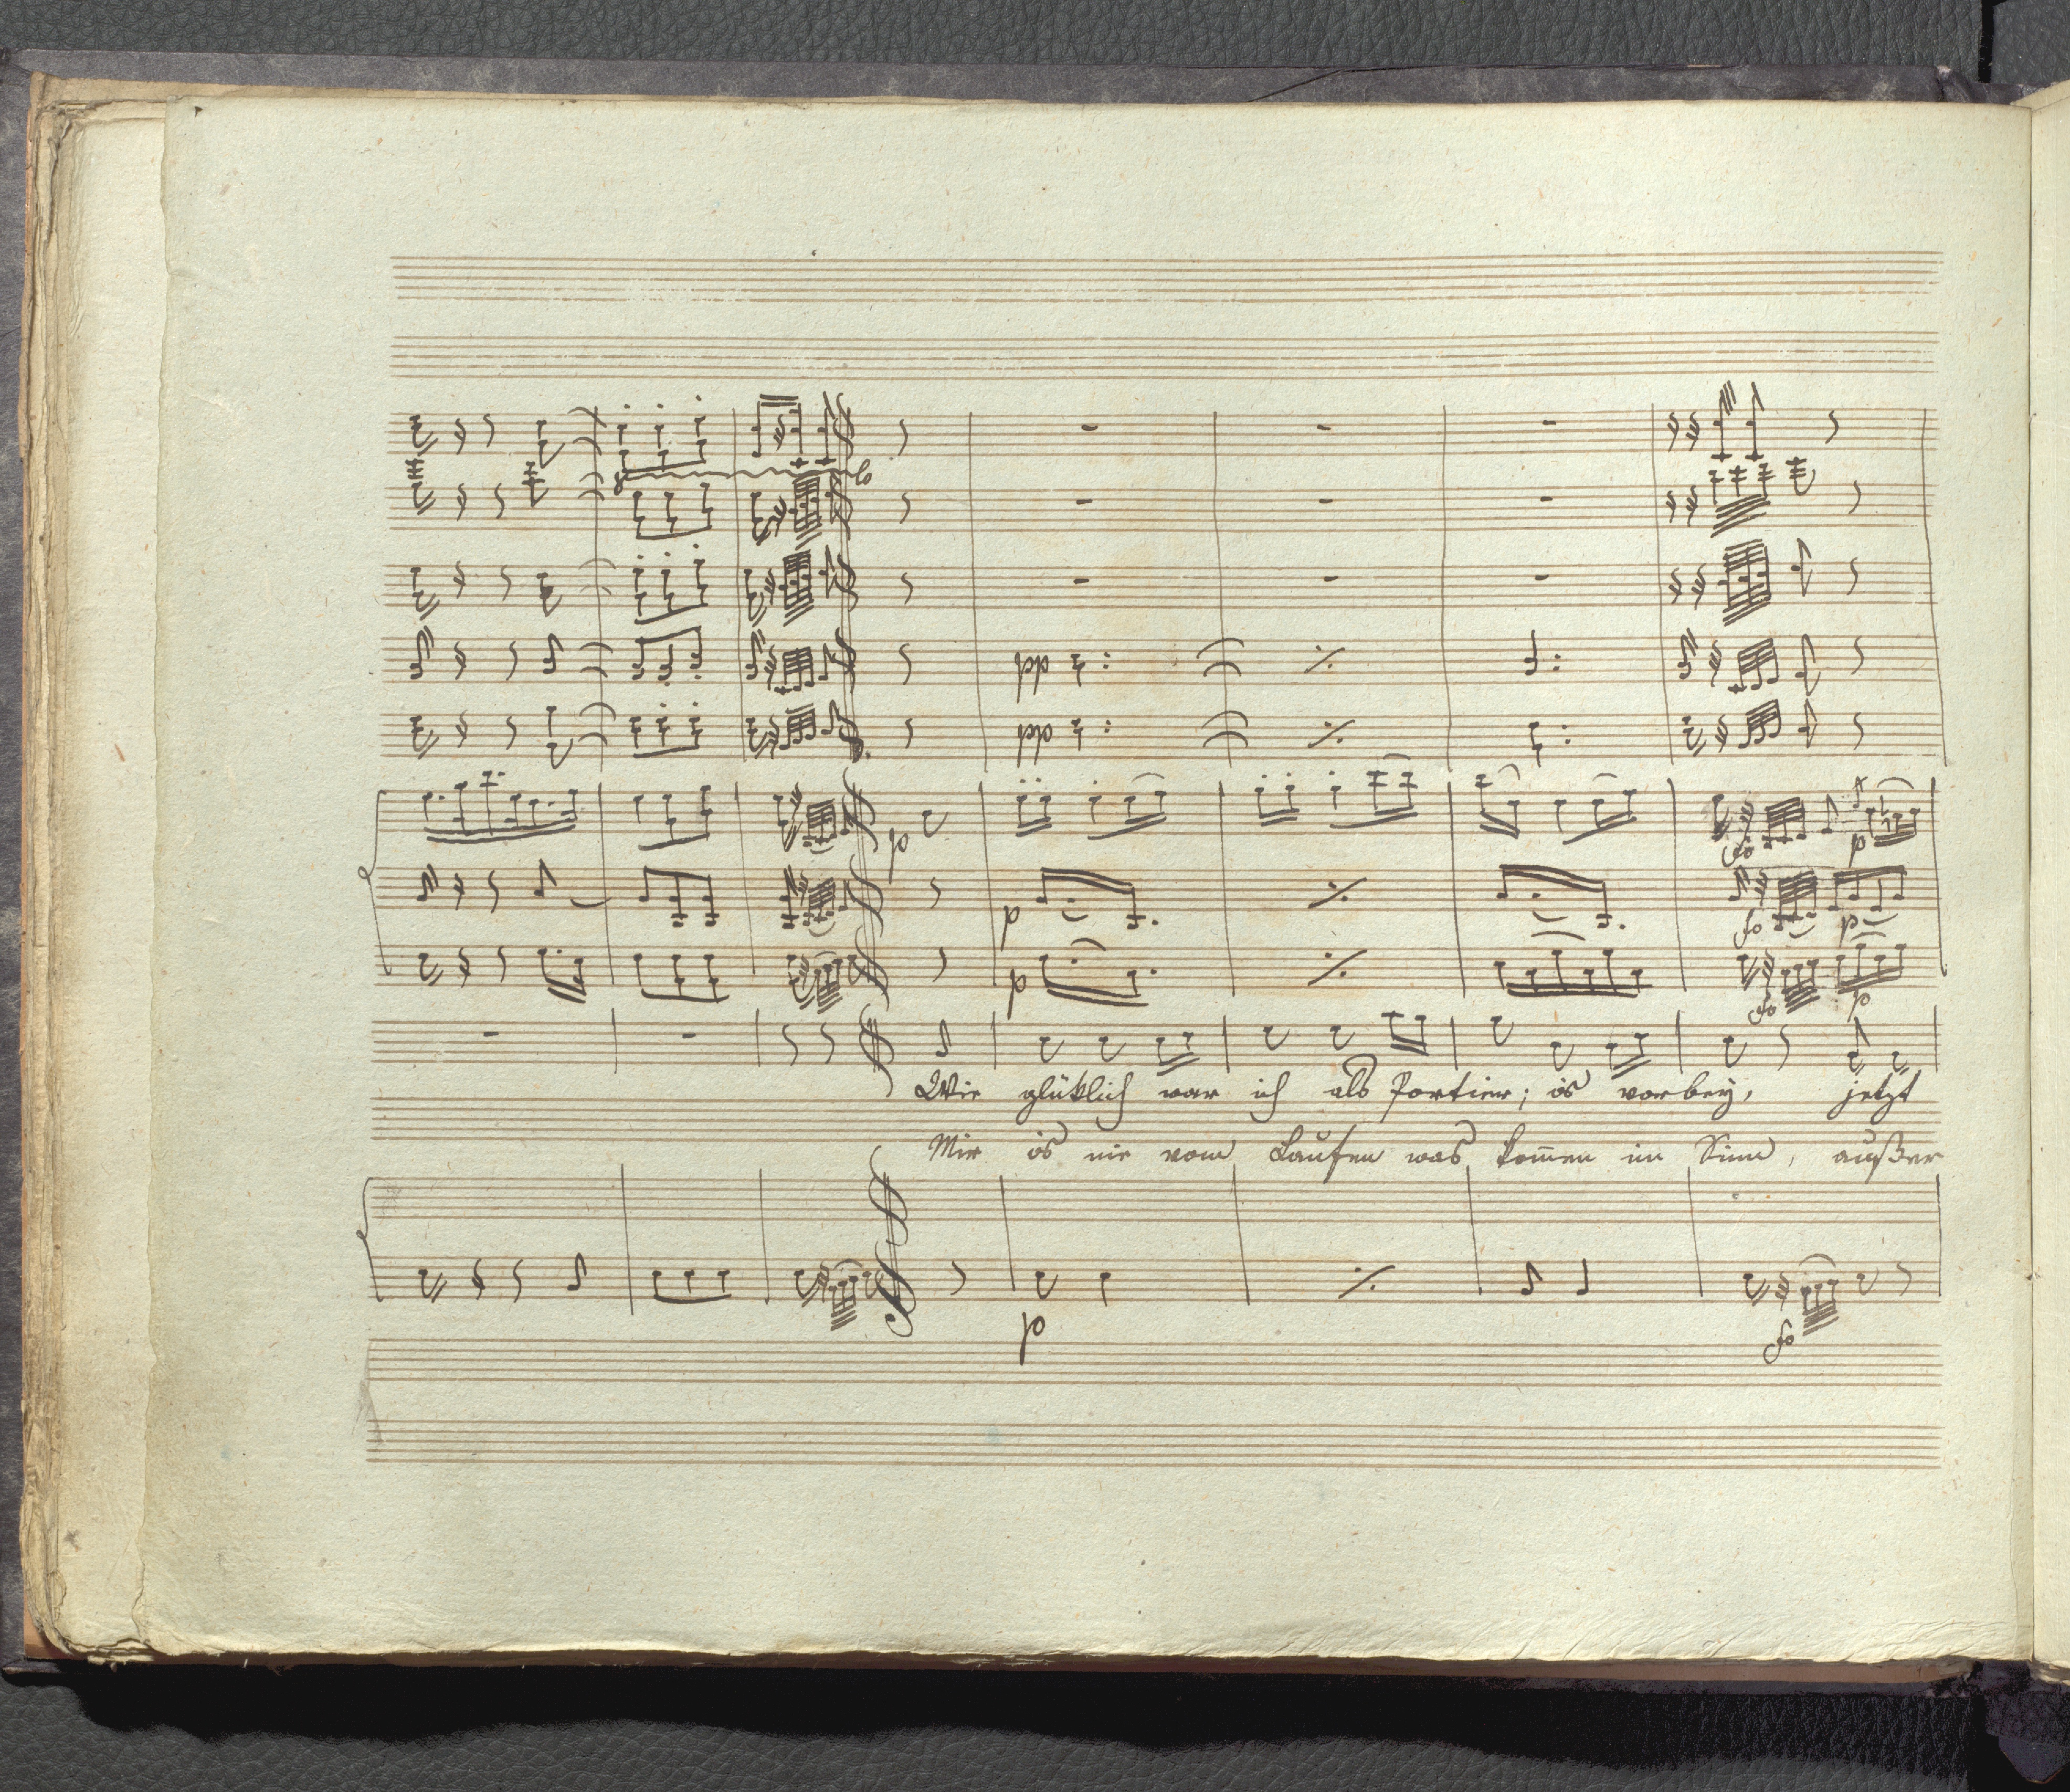 8 loco
p
pp
pp
fo p
p fo p
p fo p
Wie glüklich war ich als Portier; is vorbey, jetzt
Mir is nie vom Laufen was kom̅en im Sinn, außer
p fo